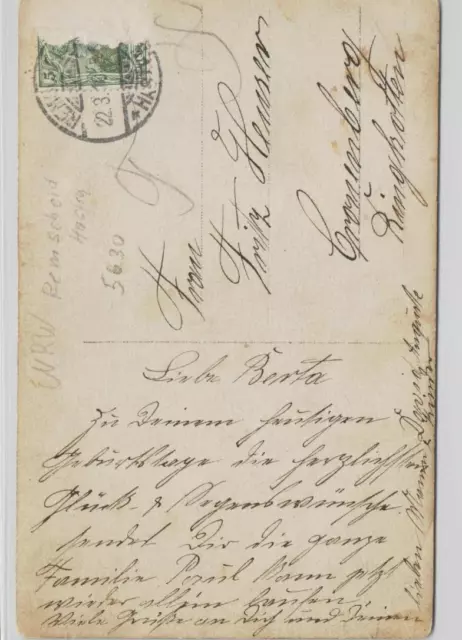 5
REMSCHEID
22.3.
Frau
Fritz Hemser
Cronenberg
NRW
Remscheid
Hasten
5630
Liebe Berta
Zu Deinem heutigen
Geburtstage die herzlichsten
Glück- & Segenswünsche
sendet Dir die ganze
Familie Paul Kann jetzt
wieder allein laufen.
Viele Grüße an Dich und Deinen
lieben Mann